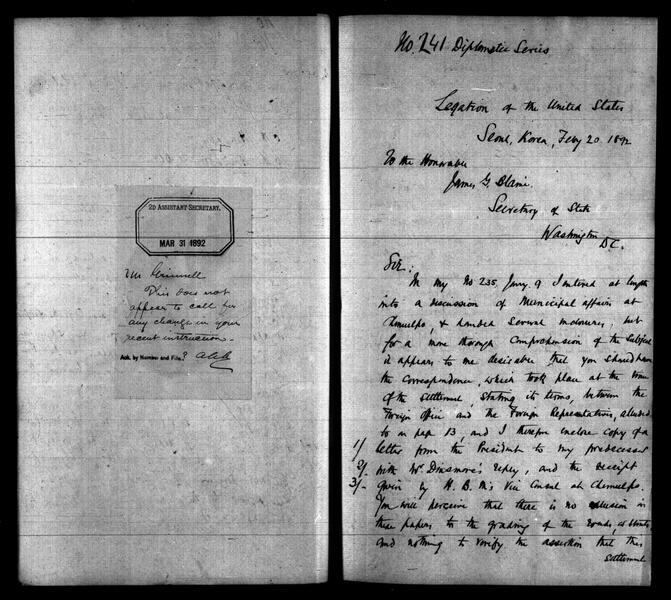 2D ASSISTANT SECRETARY.
MAR 31 1892
Mr Grinnell
This does not
appear to call for
any change in your
recent instructions.
Ack. by Number and File? AAA
No. 241 Diplomatic Series
Legation of the United States
Seoul, Korea, Feby 20 1892
To the Honorable
James G. Blaine.
Secretary of State
Washington
D.C.
Sir:
In my No 235 Jany. 9 I entered at length
into a discussion of Municipal affairs at
Chemulpo, & handed several inclosures, but
for a more thorough Comprehension of the Subject
it appears to me desirable that you should have
the correspondence which took place at the time
of the Settlement, stating its terms, between the
Foreign Office and the Foreign Representatives, alluded
to on page 13, and I therefore enclose copy of a
1/ letter from the President to my predecessor
2/- with Mr Dinsmore's reply, and the receipt
3/- given by H. B. M's Vice Consul at Chemulpo.
You will perceive that there is no allusion in
these papers to the grading of the roads, or streets
and nothing to verify the assertion that this
settlement